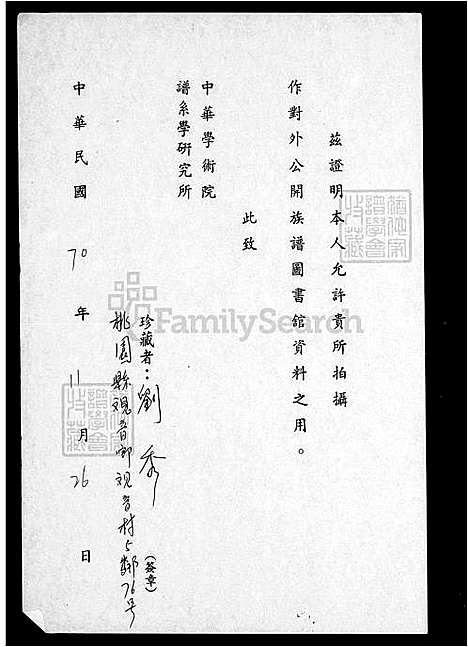 茲證明本人允許貴所拍攝
作對外公開族譜圖書館資料之用。
此致
中華學術院
譜系學研究所
珍藏者：劉秀
(簽章)
桃園縣觀音鄉觀音村5鄰76号
中華民國70年11月26日
FamilySearch